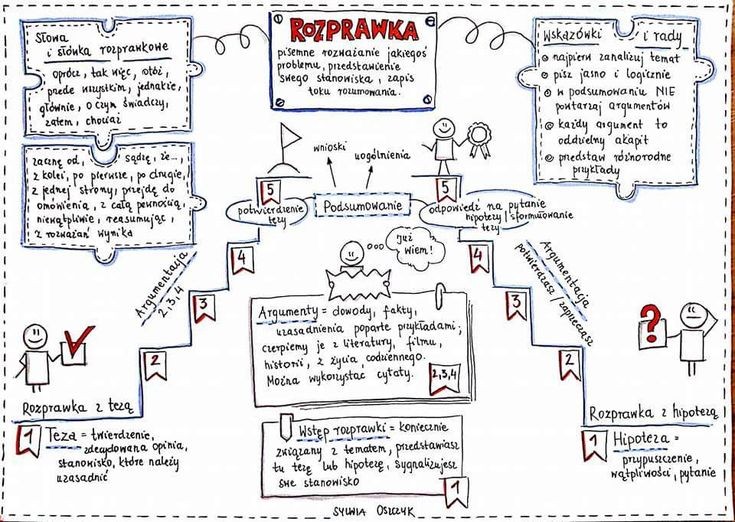 ROZPRAWKA
pisemne rozważanie jakiegoś
problemu, przedstawienie
swego stanowiska, zapis
toku rozumowania.
Słowa
i słówka rozprawkowe
oprócz, tak więc, otóż,
przede wszystkim, jednakże,
głównie, o czym świadczy,
zatem, chociaż
zacznę od, sądzę, że...,
z kolei, po pierwsze, po drugie,
z jednej strony, przejdę do
omówienia, z całą pewnością,
niewątpliwie, reasumując,
z rozważań wynika
Wskazówki i rady
najpierw zanalizuj temat
pisz jasno i logicznie
w podsumowaniu NIE
powtarzaj argumentów
każdy argument to
oddzielny akapit
przedstaw różnorodne
przykłady
wnioski
uogólnienia
5
5
potwierdzenie
tezy
Podsumowanie
odpowiedź na pytanie
hipotezy / sformułowanie
tezy
Argumentacja
2,3,4
4
3
2
Już
wiem!
4
3
2
Argumentacja
potwierdzasz / zaprzeczasz
Argumenty = dowody, fakty,
uzasadnienia poparte przykładami;
czerpiemy je z literatury, filmu,
historii, z życia codziennego.
Można wykorzystać cytaty.
2,3,4
?
Rozprawka z tezą
1 Teza = twierdzenie,
zdecydowana opinia,
stanowisko, które należy
uzasadnić
Wstęp rozprawki = koniecznie
związany z tematem, przedstawiasz
tu tezę lub hipotezę, sygnalizujesz
swe stanowisko
1
Rozprawka z hipotezą
1 Hipoteza =
przypuszczenie,
wątpliwości, pytanie
SYLWIA OSZCZYK